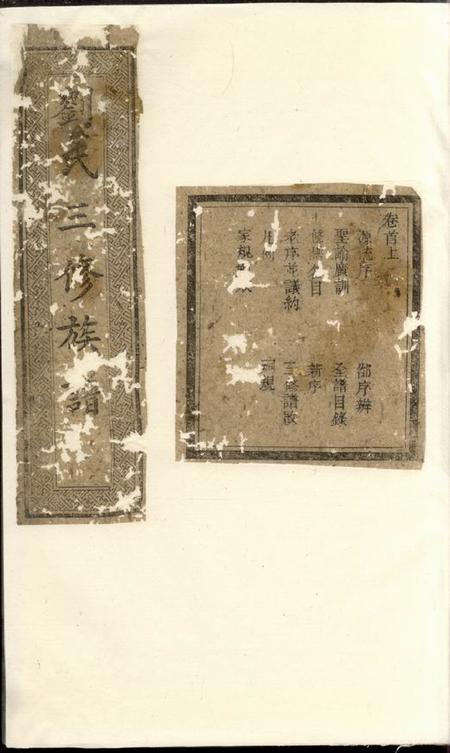 劉氏三修族譜
卷首上
源流序 郜序辨
聖諭廣訓 全譜目錄
修譜名目 新序
老序并議約 三修譜敘
凡例 祠規
家規